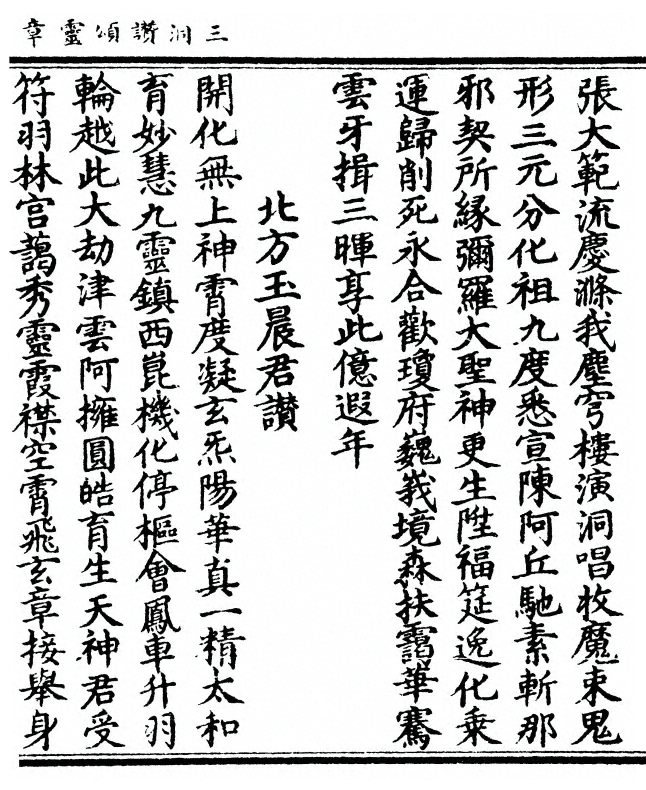 三洞讚頌靈章
張大範流慶滌我塵穹樓演洞唱收魔束鬼
形三元分化祖九度悉宣陳阿丘馳素斬那
邪契所緣彌羅大聖神更生陞福筵逸化乗
運歸削死永合歡瓊府巍峩境森扶靄華騫
雲牙揖三暉享此億遐年
北方玉晨君讃
開化無上神霄度凝玄炁陽華真一精太和
育妙慧九靈鎮西崑機化停樞會鳳車升羽
輪越此大劫津雲阿擁圓皓育生天神君受
符羽林宫藹秀靈霞襟空霄飛玄章接舉身